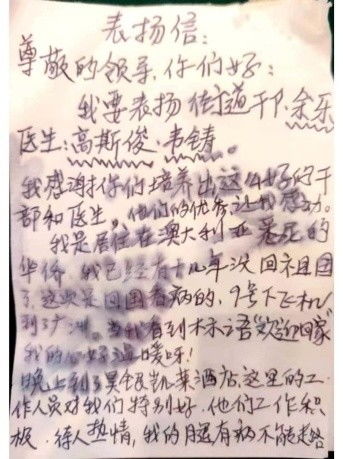 表扬信:
尊敬的领导,你们好:
我要表扬街道干部.余乐
医生:高斯俊.韦铸。
我感谢你们培养出这么好的干
部和医生,他们的优秀让我感动。
我是居住在澳大利亚悉尼的
华侨,我已经有十几年没回祖国
了,这次是回国看病的,9号下飞机
到广州。当我看到标语"欢迎回家"
我的心好温暖呀!
晚上到了昊铭凯莱酒店,这里的工
作人员对我们特别好.他们工作积
极.待人热情,我的腿有病不能走路